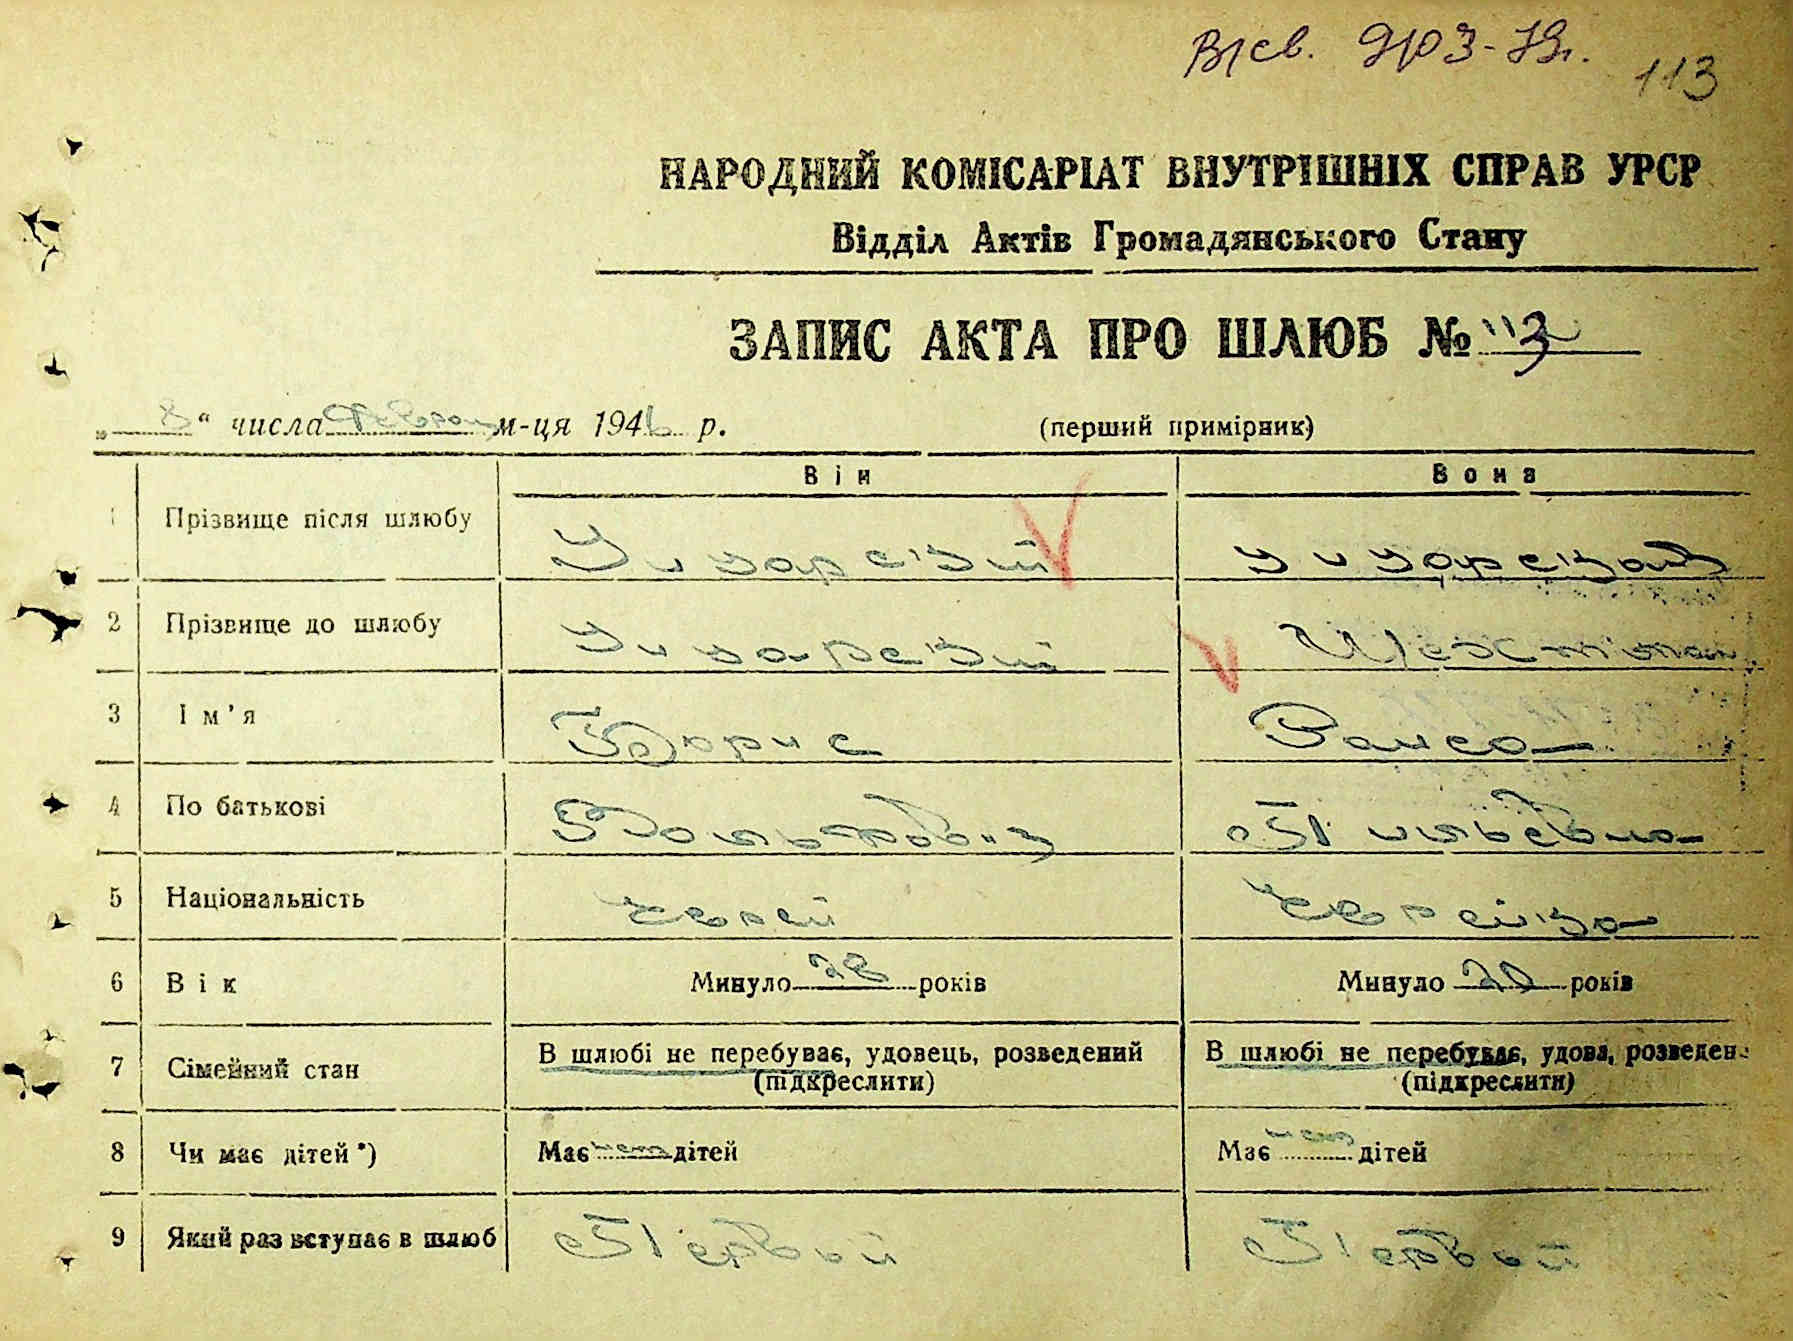 113
НАРОДНИЙ КОМІСАРІАТ ВНУТРІШНІХ СПРАВ УРСР
Відділ Актів Громадянського Стану
ЗАПИС АКТА ПРО ШЛЮБ № 113
„ 8 “ числа м-ця 1946 р. (перший примірник)
Він Вона
1 Прізвище після шлюбу
2 Прізвище до шлюбу
3 Ім'я Борис Раиса
4 По батькові
5 Національність еврей еврейка
6 Вік Минуло 28 років Минуло 20 років
7 Сімейний стан В шлюбі не перебуває, удовець, розведений В шлюбі не перебуває, удова, розведен
(підкреслити) (підкреслити)
8 Чи має дітей *) Має нет дітей Має нет дітей
9 Який раз вступає в шлюб Первый Первый